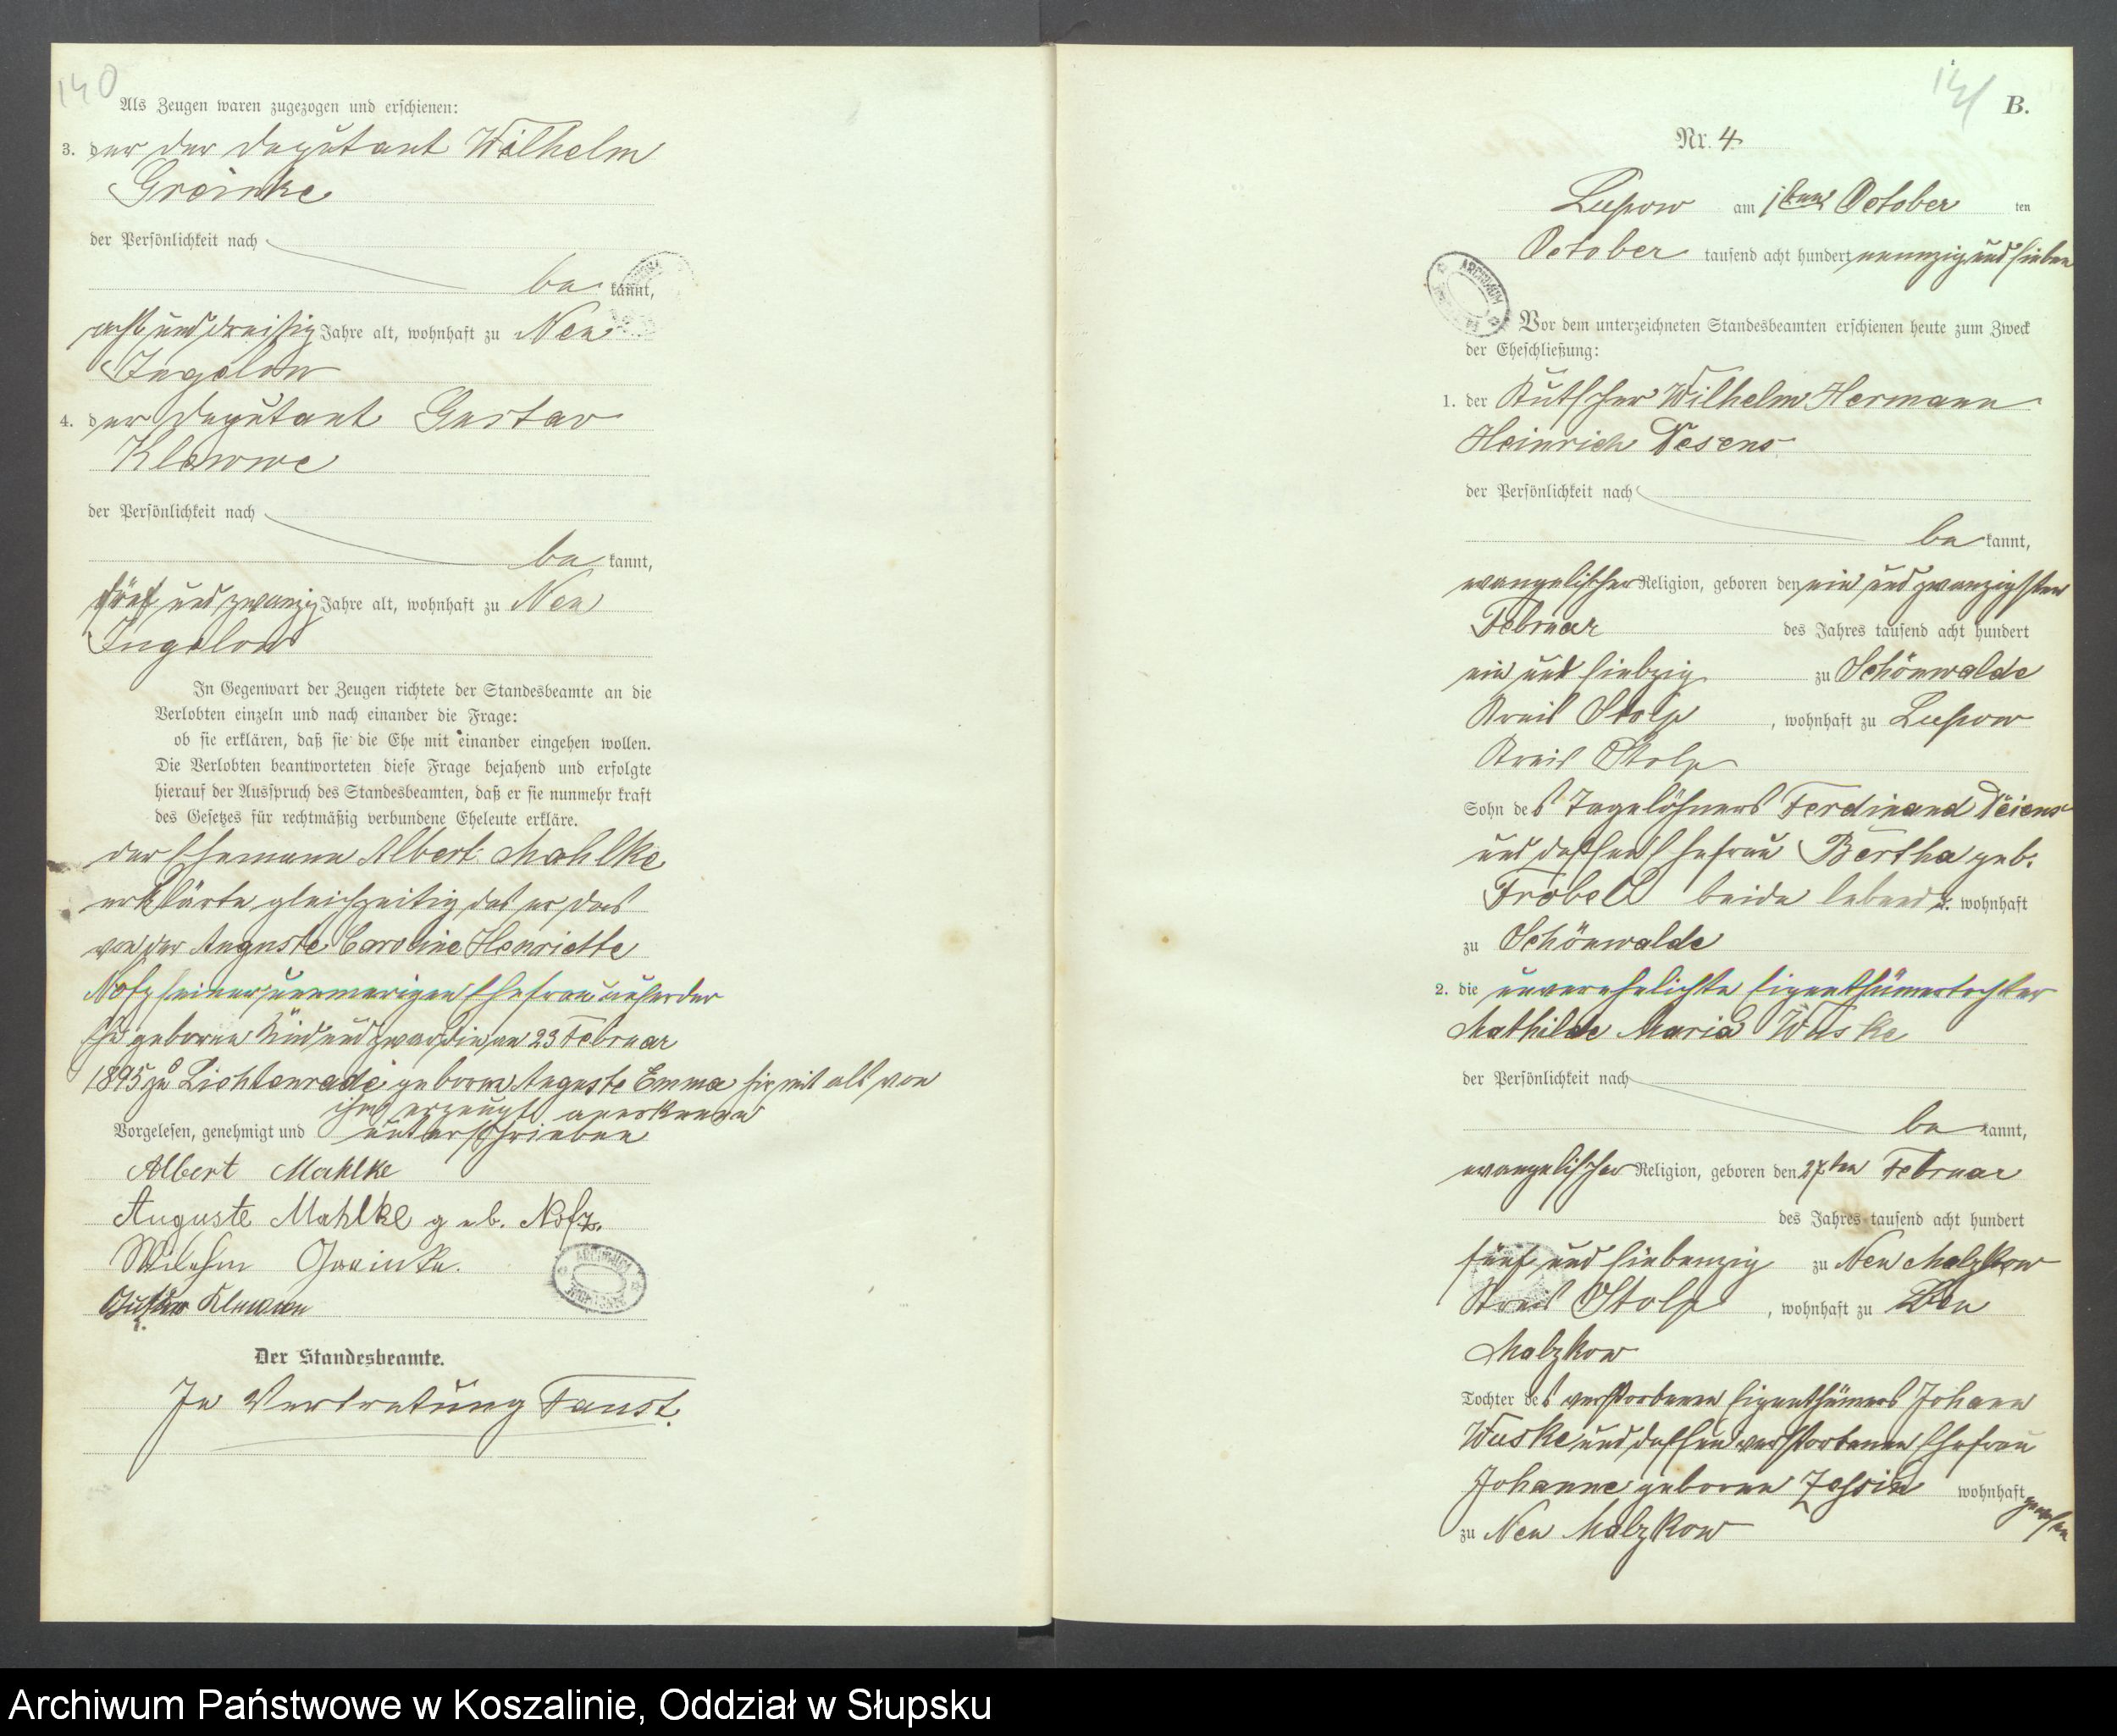 140
Als Zeugen waren zugezogen und erschienen:
3. der der Deputant Wilhelm
Greinke
der Persönlichkeit nach
be kannt,
acht und dreißig Jahre alt, wohnhaft zu Neu
Jugelow
4. der Deputant Gustav
Klawwe
der Persönlichkeit nach
be kannt,
fünf und zwanzig Jahre alt, wohnhaft zu Neu
Jugelow
In Gegenwart der Zeugen richtete der Standesbeamte an die
Verlobten einzeln und nach einander die Frage:
ob sie erklären, daß sie die Ehe mit einander eingehen wollen.
Die Verlobten beantworteten diese Frage bejahend und erfolgte
hierauf der Ausspruch des Standesbeamten, daß er sie nunmehr kraft
des Gesetzes für rechtmäßig verbundene Eheleute erkläre.
der Ehemann Albert Mahlke
erklärte gleichzeitig das er das
von der Auguste Caroline Henriette
Nofz seiner nunmerigen Ehefrau außer der
Ehe geborene Kind und zwar die am 23 Februar
1895 zu Lichtenrade geborne Auguste Emma hiermit als von
ihm erzeugt anerkenne
Vorgelesen, genehmigt und unterschrieben
Albert Mahlke
Auguste Mahlke geb. Nofz.
Wilhelm Greinke.
Gustav Klawwe
Der Standesbeamte.
In Vertretung Faust.
141
B.
Nr. 4
Lupow am October ten
October tausend acht hundert neunzig und sieben
Vor dem unterzeichneten Standesbeamten erschienen heute zum Zweck
der Eheschließung:
1. der Kutscher Wilhelm Hermann
Heinrich
der Persönlichkeit nach
be kannt,
evangelischer Religion, geboren den ein und zwanzigsten
Februar des Jahres tausend acht hundert
ein und siebzig zu Schönwalde
Kreis Stolp, wohnhaft zu Lupow
Kreis Stolp
Sohn des Tagelöhners Ferdinand
und dessen Ehefrau Bertha geb.
Fröbel beide lebend u. wohnhaft
zu Schönwalde
2. die unverehelichte Eigenthümertochter
Mathilde Maria Wuske
der Persönlichkeit nach
be kannt,
evangelischer Religion, geboren den 27ten Februar
des Jahres tausend acht hundert
fünf und siebenzig zu Neu Malzkow
Kreis Stolp, wohnhaft zu Neu
Malzkow
Tochter des verstorbenen Eigenthümers Johann
Wuske und dessen verstorbenen Ehefrau
Johanne geborene wohnhaft gewesen
zu Neu Malzkow
Archiwum Państwowe w Koszalinie, Oddział w Słupsku